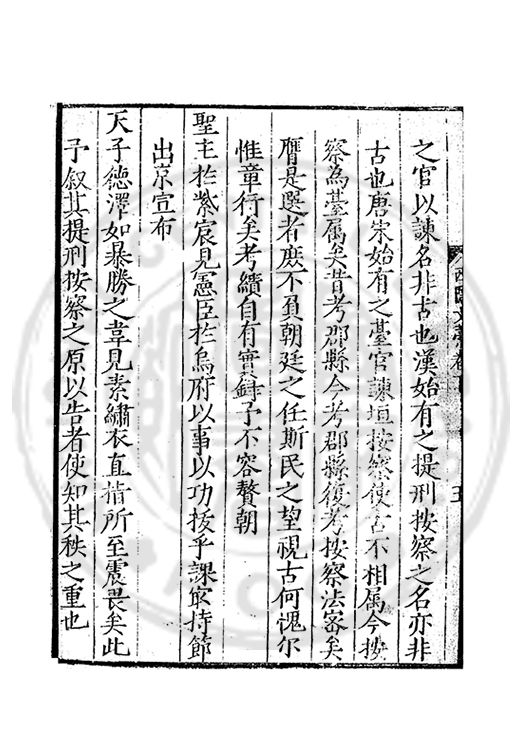 之官以諫名非古也漢始有之提刑按察之名亦非
古也唐宋始有之臺官諫垣按察使言不相属今按
察為臺属矣昔考郡縣今考郡縣復考按察法宻矣
膺是選者庶不負朝廷之任斯民之望視古何愧尔
惟章行矣考績自有實録予不容贅朝
聖主於紫宸見憲臣於烏府以事以功授乎課最持節
出京宣布
天子德澤如暴勝之韋見素繡衣直指所至震畏矣此
予叙其提刑按察之原以告者使知其秩之重也
五